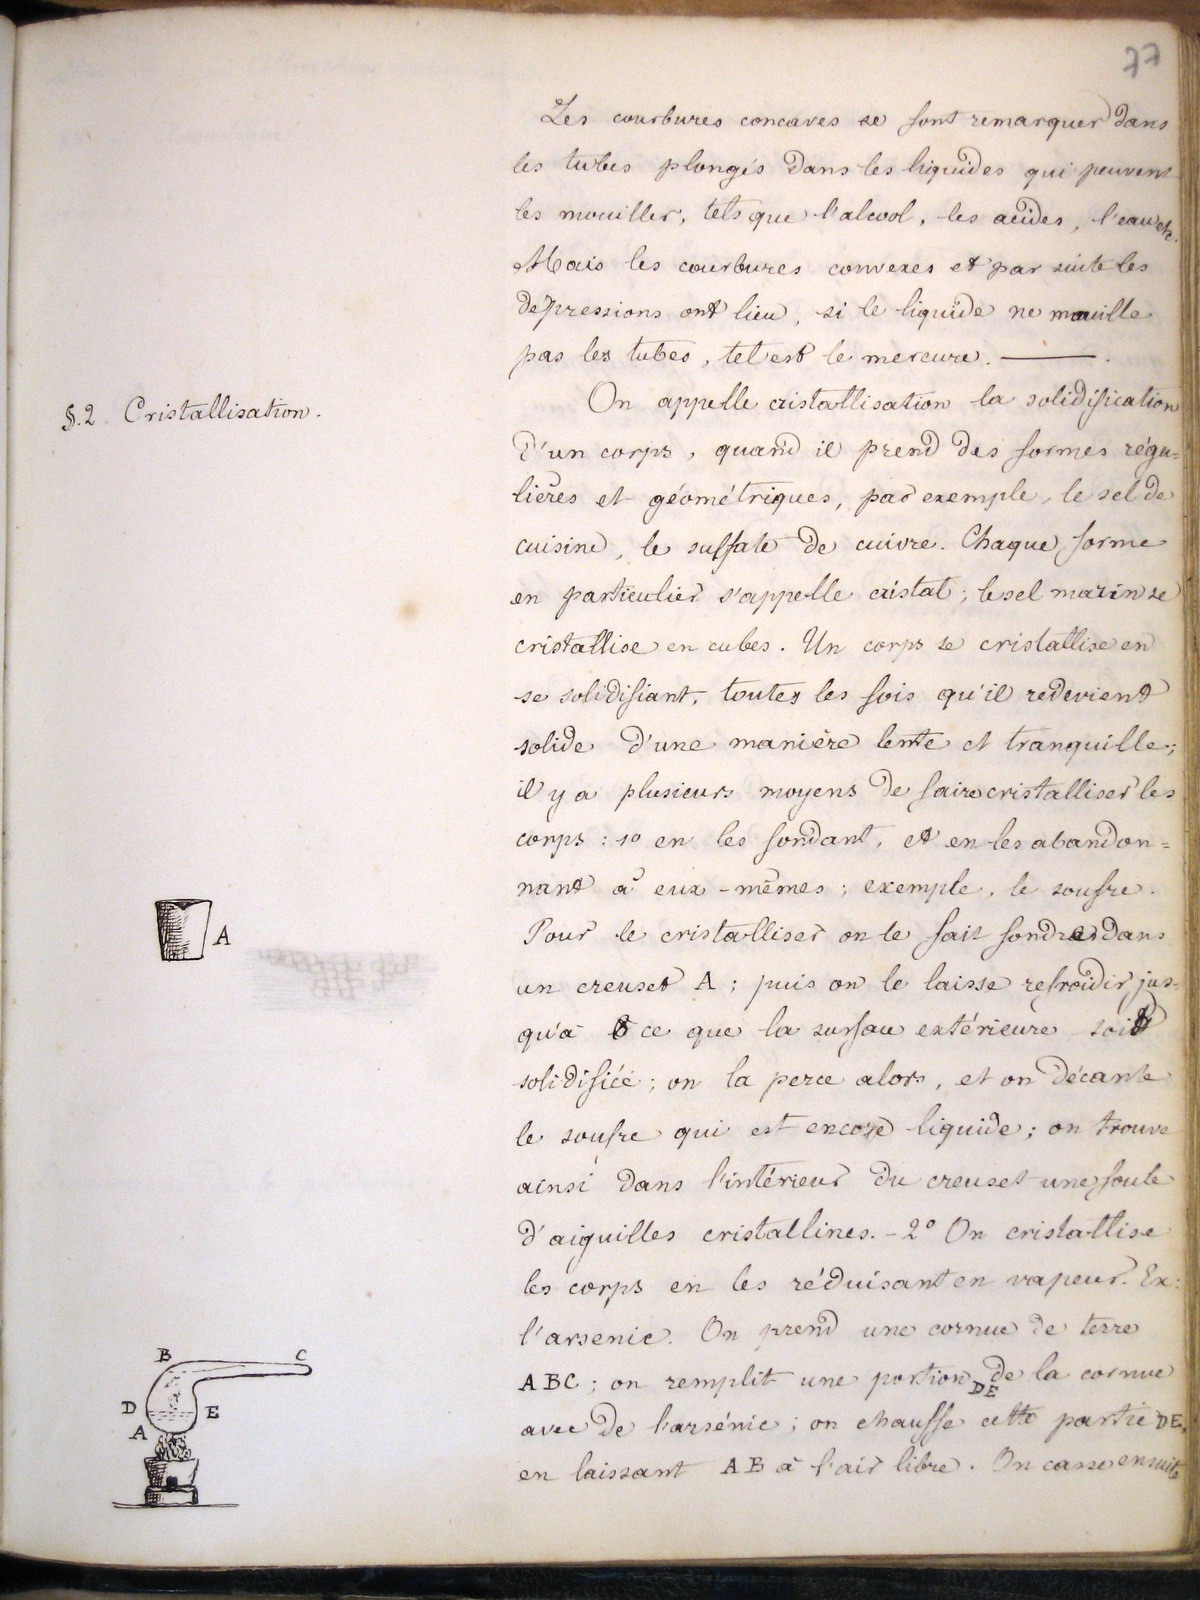 77
Les courbures concaves se font remarquer dans
les tubes plongés dans les liquides qui peuvent
les mouiller, tels que l'alcool, les acides, l'eau etc.
Mais les courbures convexes et par suite les
dépressions ont lieu, si le liquide ne mouille
pas les tubes, tel est le mercure. ———.
§.2. Cristallisation.
On appelle cristallisation la solidification
d'un corps, quand il prend des formes régu=
lières et géométriques, par exemple, le sel de
cuisine, le sulfate de cuivre. Chaque forme
en particulier s'appelle cristal; le sel marin se
cristallise en cubes. Un corps se cristallise en
se solidifiant, toutes les fois qu'il redevient
solide d'une manière lente et tranquille;
il y a plusieurs moyens de faire cristalliser les
corps: 1º en les fondant, et en les abandon=
nant à eux-mêmes; exemple, le soufre.
Pour le cristalliser on le fait fondre dans
A
un creuset A; puis on le laisse refroidir jus-
qu'à ce que la surface extérieure soit
solidifiée; on la perce alors, et on décante
le soufre qui est encore liquide; on trouve
ainsi dans l'intérieur du creuset une foule
d'aiguilles cristallines. - 2º On cristallise
les corps en les réduisant en vapeur. Ex:
l'arsenic. On prend une cornue de terre
B C
D E
A
ABC; on remplit une portion DE de la cornue
avec de l'arsénic; on chauffe cette partie DE,
en laissant AB à l'air libre. On casse ensuite